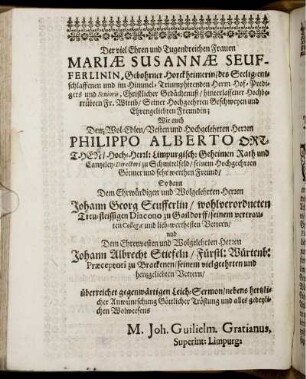 Der viel Ehren und Tugendreichen Frauen
MARIÆ SUSANNÆ SEUF-
FERLININ, Gebohrner Horckheimerin/des Seelig-ent-
schlaffenen und im Himmel-Triumphirenden Herrn Hof-Predi-
gers und Senioris, Christlicher Gedächtenuß/hinterlassener Hochbe-
trübten Fr. Wittib/Seiner Hochgeehrten Geschweyen und
Ehrengeliebten Freundin;
Wie auch
Dem Wol-Edlen/Vesten und Hochgelehrten Herrn
PHILIPPO ALBERTO
Hoch-Herrl: Limpurgisch: Geheimen Rath und
Cantzeley-Directori zu Schmidelfeld/seinem Hochgeehrten
Gönner und sehr werthen Freund/
So denn
Dem Ehrwürdigen und Wolgelehrten Herrn
Johann Georg Seufferlin/wohlverordneten
Treu fleissigen Diacono zu Gaildorff/seinem vertrau-
ten Collegæ und lieb-werthesten Vettern/
und
Dem Ehrenvesten und Wolgelehrten Herren
Johann Albrecht Stiefeln/Fürstl: Würtemb:
Præceptori zu Brackenheim/seinem vielgeehrten und
hertzgeliebten Vettern/
überreichet gegenwärtigen Leich-Sermon/nebens hertzli-
cher Anwünschung Göttlicher Tröstung und alles gedeylichen
Wolwesens
M. Joh. Guilielm. Gratianus,
Superint: Limpurg: